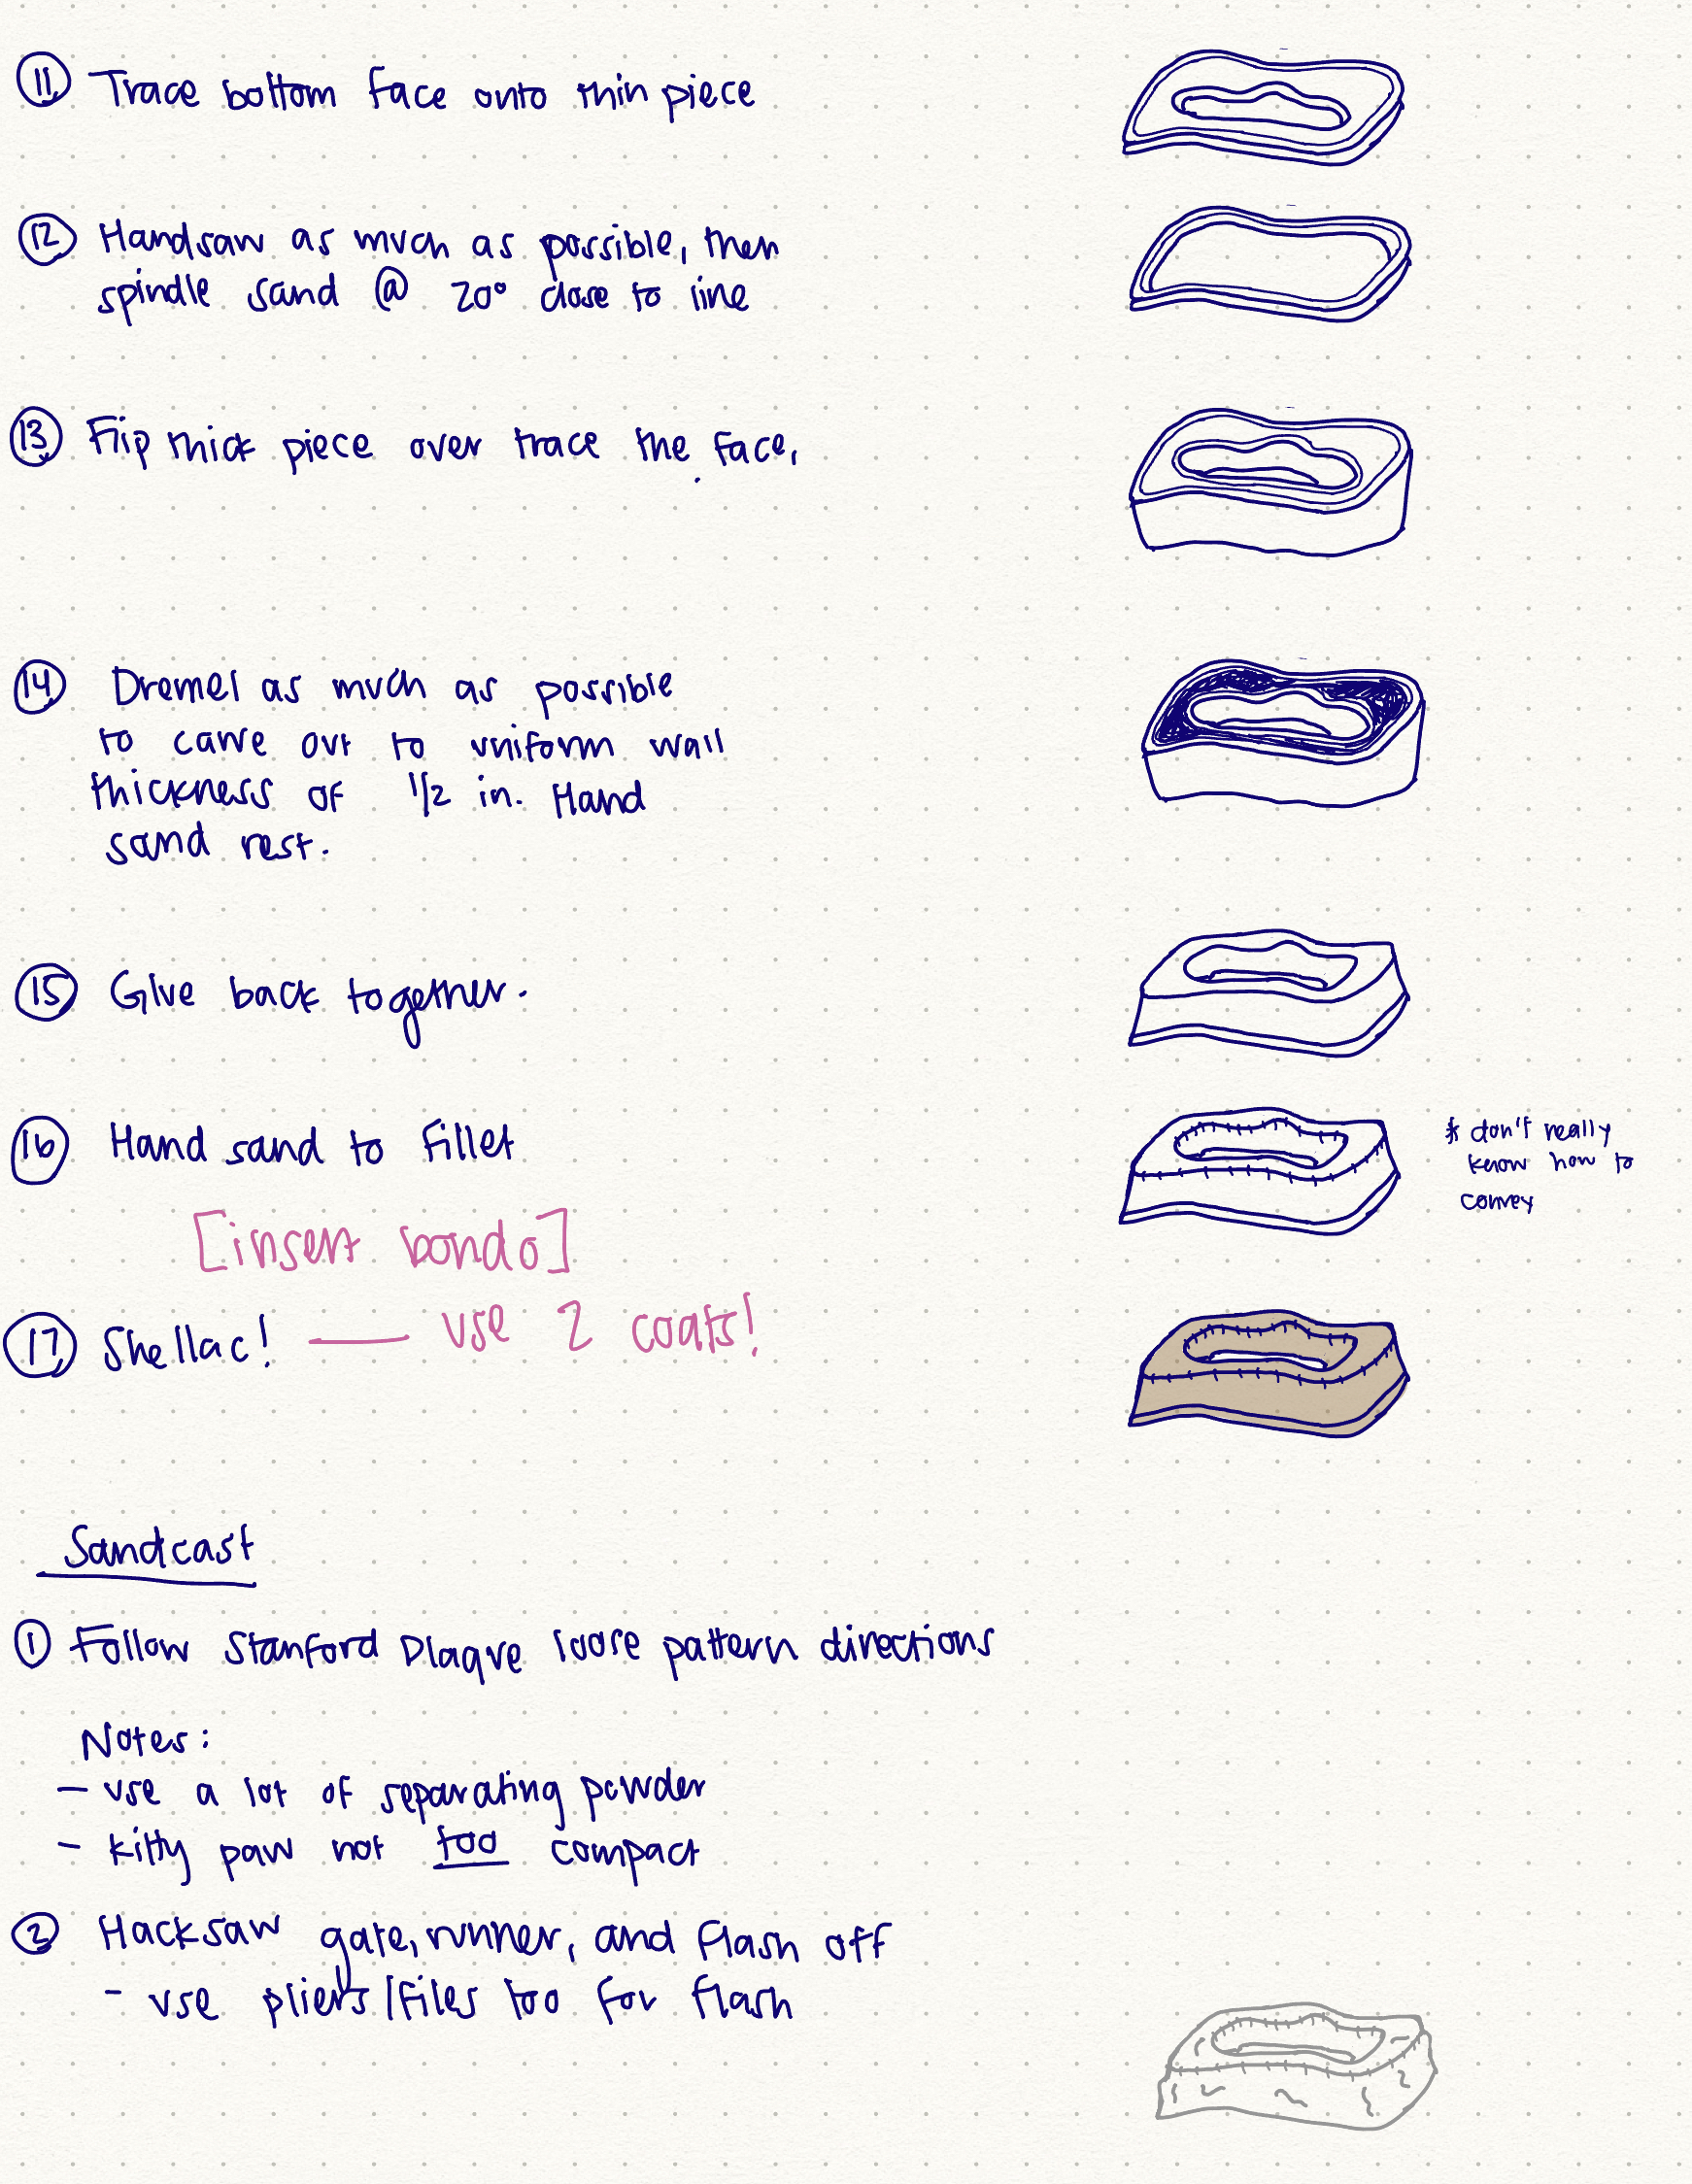 11 Trace bottom face onto thin piece
12 Handsaw as much as possible, then
spindle sand @ 20° close to line
13 Flip thick piece over trace the face.
14 Dremel as much as possible
to carve out to uniform wall
thickness of 1/2 in. Hand
sand rest.
15 Glue back together.
16 Hand sand to fillet
* don't really
know how to
convey
[insert bondo]
17 Shellac! — use 2 coats!
Sandcast
1 Follow Stanford Plaque loose pattern directions
Notes:
- use a lot of separating powder
- kitty paw not too compact
2 Hacksaw gate, runner, and flash off
- use pliers/files too for flash